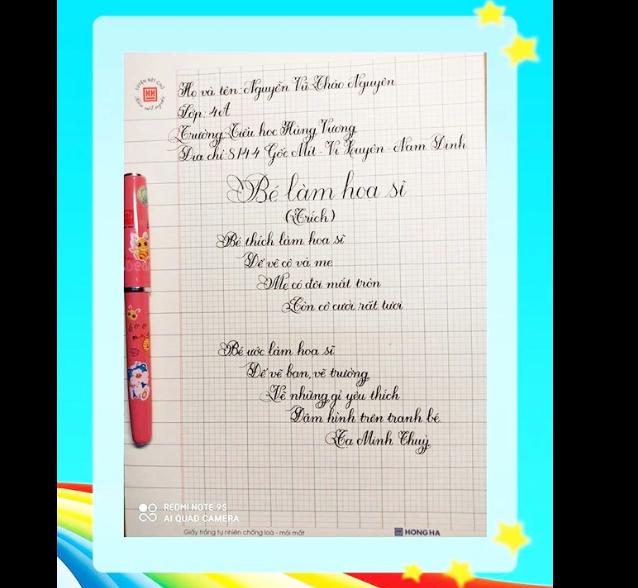 Họ và tên: Nguyễn Vũ Thảo Nguyên
Lớp: 4A
Trường: Tiểu học Hùng Vương
Địa chỉ: S144 Gốc Mít - Vị Xuyên - Nam Định
Bé làm họa sĩ
(Trích)
Bé thích làm họa sĩ
Để vẽ cô và mẹ
Mẹ có đôi mắt tròn
Còn cô cười rất tươi
Bé ước làm họa sĩ
Để vẽ bạn, vẽ trường
Vẽ những gì yêu thích
Đậm hình trên tranh bé
Tạ Minh Thuỷ
REDMI NOTE 9S
AI QUAD CAMERA
Giấy trắng tự nhiên chống loá - mỏi mắt
HONG HA